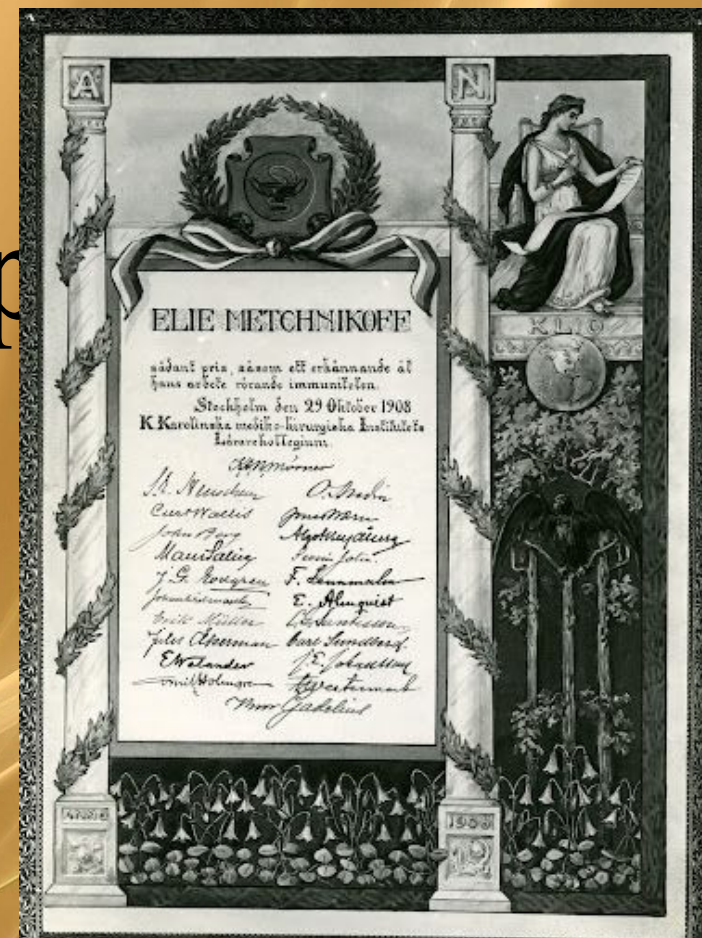 р
A N
KLIO
ELIE METCHNIKOFF
sådant pris, såsom ett erkännande åt
hans arbete rörande immuniteten.
Stockholm den 29 Oktober 1908
K. Karolinska mediko-kirurgiska Institutets
Lärarekollegium.
K.A.H. Mörner
Curt Wallis
John Berg
F. Lennmalm
E. Almquist
Erik Müller
Jules Åkerman Carl Sundberg
E Welander J.E. Johansson
Emil Holmgren
Gadelius
1908